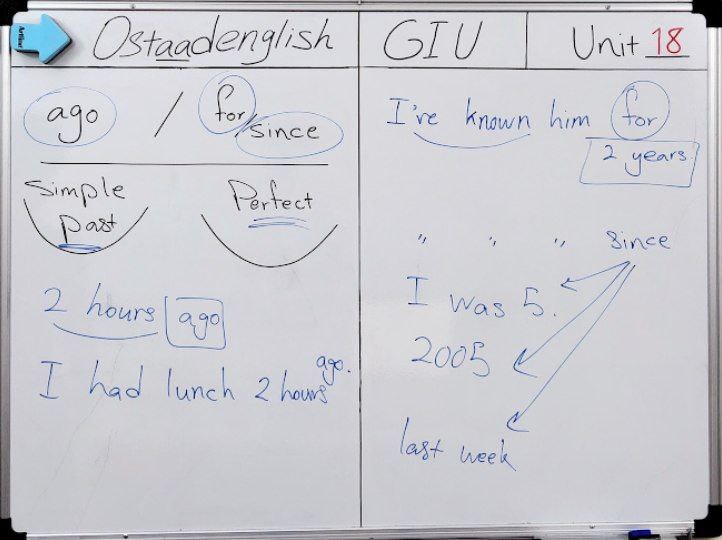 Ostaadenglish GIU Unit 18
ago / for
since
Simple
past
Perfect
2 hours ago
I had lunch 2 hours ago.
I've known him for
2 years
" " " since
I was 5.
2005
last week